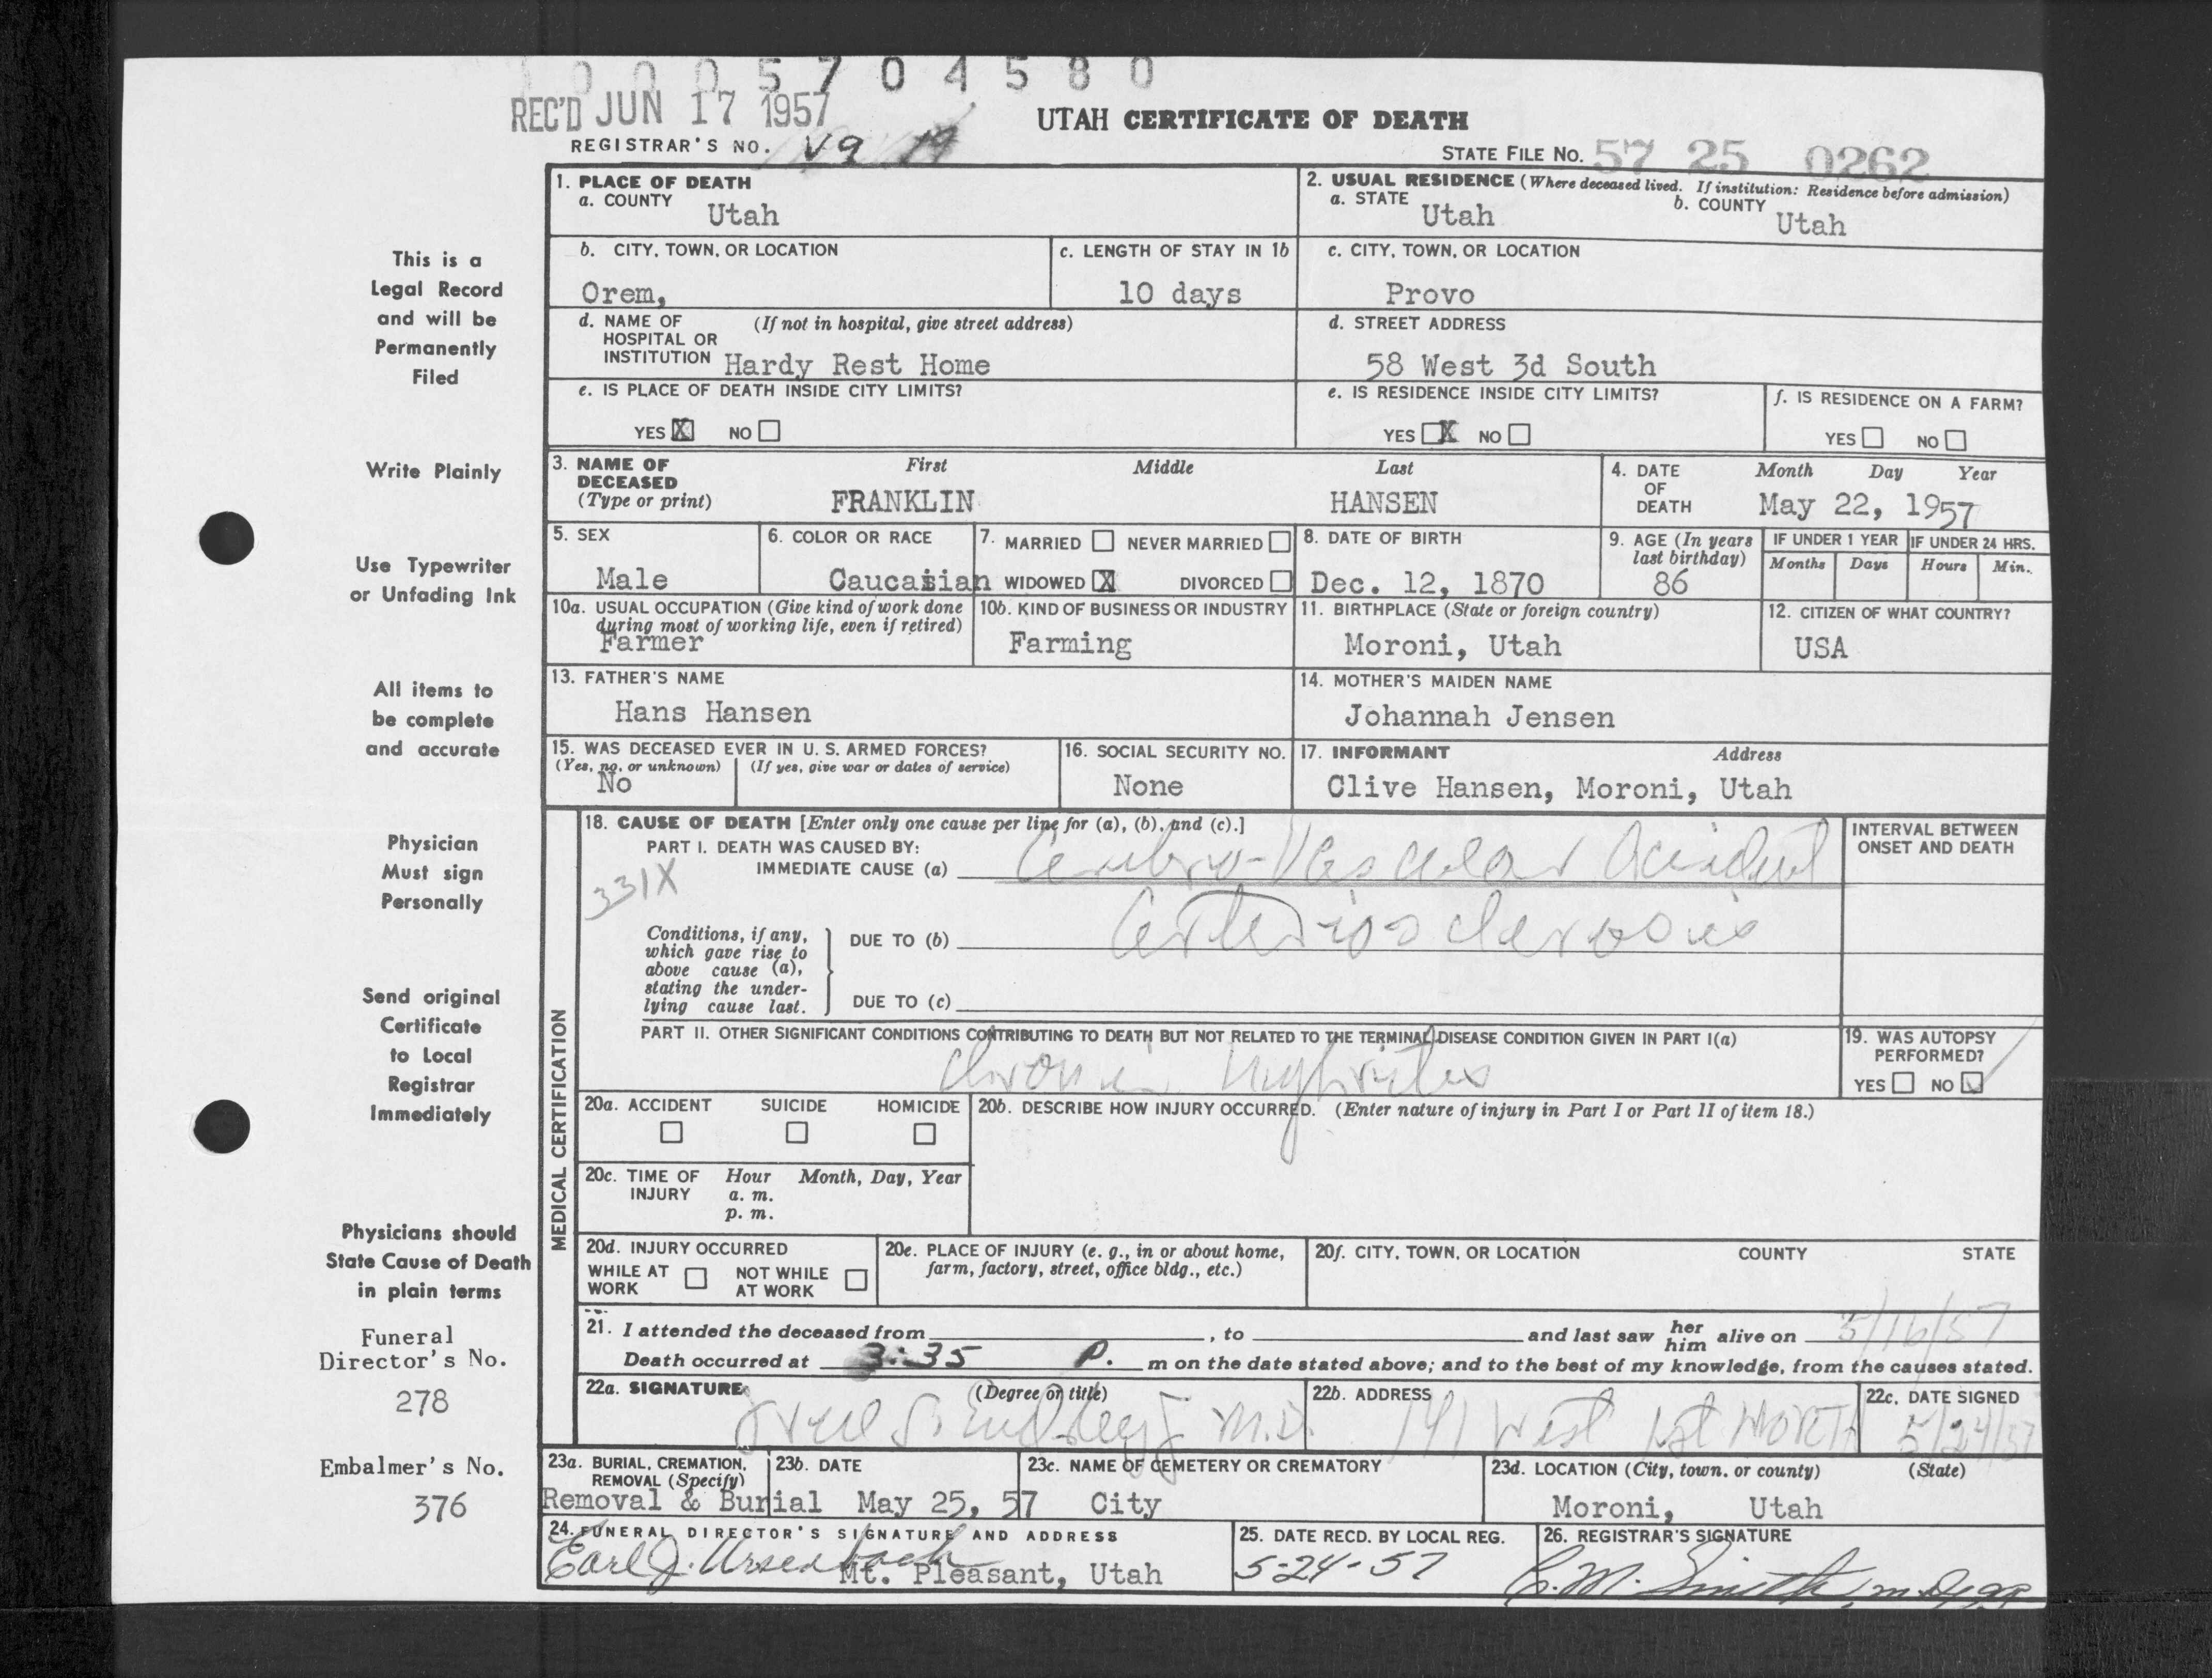 0 0 0 5 7 0 4 5 8 0
REC'D JUN 17 1957
UTAH CERTIFICATE OF DEATH
REGISTRAR'S NO.
STATE FILE NO. 57 25 0262
This is a
Legal Record
and will be
Permanently
Filed
Write Plainly
Use Typewriter
or Unfading Ink
All items to
be complete
and accurate
Physician
Must sign
Personally
Send original
Certificate
to Local
Registrar
Immediately
Physicians should
State Cause of Death
in plain terms
Funeral
Director's No.
278
Embalmer's No.
376
1. PLACE OF DEATH
a. COUNTY
Utah
2. USUAL RESIDENCE (Where deceased lived. If institution: Residence before admission)
a. STATE
Utah
b. COUNTY
Utah
b. CITY, TOWN, OR LOCATION
Orem,
c. LENGTH OF STAY IN 1b
10 days
c. CITY, TOWN, OR LOCATION
Provo
d. NAME OF HOSPITAL OR INSTITUTION (If not in hospital, give street address)
Hardy Rest Home
d. STREET ADDRESS
58 West 3d South
e. IS PLACE OF DEATH INSIDE CITY LIMITS?
YES X NO
e. IS RESIDENCE INSIDE CITY LIMITS?
YES X NO
f. IS RESIDENCE ON A FARM?
YES NO
3. NAME OF DECEASED (Type or print)
First Middle Last
FRANKLIN HANSEN
4. DATE OF DEATH
Month Day Year
May 22, 1957
5. SEX
Male
6. COLOR OR RACE
Caucasian
7. MARRIED NEVER MARRIED
WIDOWED X DIVORCED
8. DATE OF BIRTH
Dec. 12, 1870
9. AGE (In years last birthday)
86
IF UNDER 1 YEAR
Months Days
IF UNDER 24 HRS.
Hours Min.
10a. USUAL OCCUPATION (Give kind of work done during most of working life, even if retired)
Farmer
10b. KIND OF BUSINESS OR INDUSTRY
Farming
11. BIRTHPLACE (State or foreign country)
Moroni, Utah
12. CITIZEN OF WHAT COUNTRY?
USA
13. FATHER'S NAME
Hans Hansen
14. MOTHER'S MAIDEN NAME
Johannah Jensen
15. WAS DECEASED EVER IN U. S. ARMED FORCES?
(Yes, no, or unknown) (If yes, give war or dates of service)
No
16. SOCIAL SECURITY NO.
None
17. INFORMANT Address
Clive Hansen, Moroni, Utah
MEDICAL CERTIFICATION
18. CAUSE OF DEATH [Enter only one cause per line for (a), (b), and (c).]
PART I. DEATH WAS CAUSED BY:
IMMEDIATE CAUSE (a) Cerebro-Vascular Accident
331X
Conditions, if any, which gave rise to above cause (a), stating the underlying cause last.
DUE TO (b) Arteriosclerosis
DUE TO (c)
INTERVAL BETWEEN ONSET AND DEATH
PART II. OTHER SIGNIFICANT CONDITIONS CONTRIBUTING TO DEATH BUT NOT RELATED TO THE TERMINAL DISEASE CONDITION GIVEN IN PART I(a)
Chronic Nephritis
19. WAS AUTOPSY PERFORMED?
YES NO ✓
20a. ACCIDENT SUICIDE HOMICIDE
20b. DESCRIBE HOW INJURY OCCURRED. (Enter nature of injury in Part I or Part II of item 18.)
20c. TIME OF INJURY Hour Month, Day, Year
a. m.
p. m.
20d. INJURY OCCURRED
WHILE AT WORK NOT WHILE AT WORK
20e. PLACE OF INJURY (e. g., in or about home, farm, factory, street, office bldg., etc.)
20f. CITY, TOWN, OR LOCATION COUNTY STATE
21. I attended the deceased from , to and last saw her him alive on 5/16/57
Death occurred at 3:35 P. m on the date stated above; and to the best of my knowledge, from the causes stated.
22a. SIGNATURE (Degree or title)
M.D.
22b. ADDRESS
141 West 1st NORTH
22c. DATE SIGNED
5/24/57
23a. BURIAL, CREMATION, REMOVAL (Specify)
Removal & Burial
23b. DATE
May 25, 57
23c. NAME OF CEMETERY OR CREMATORY
City
23d. LOCATION (City, town, or county) (State)
Moroni, Utah
24. FUNERAL DIRECTOR'S SIGNATURE AND ADDRESS
Earl J. Ursenbach
Mt. Pleasant, Utah
25. DATE RECD. BY LOCAL REG.
5-24-57
26. REGISTRAR'S SIGNATURE
C. M. Smith